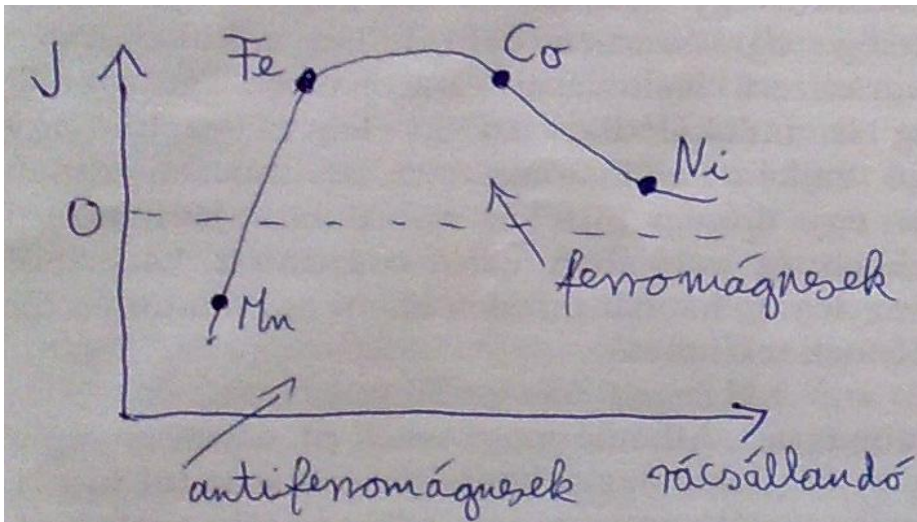 J
Fe
Co
Ni
0
ferromágnesek
Mn
antiferromágnesek
rácsállandó